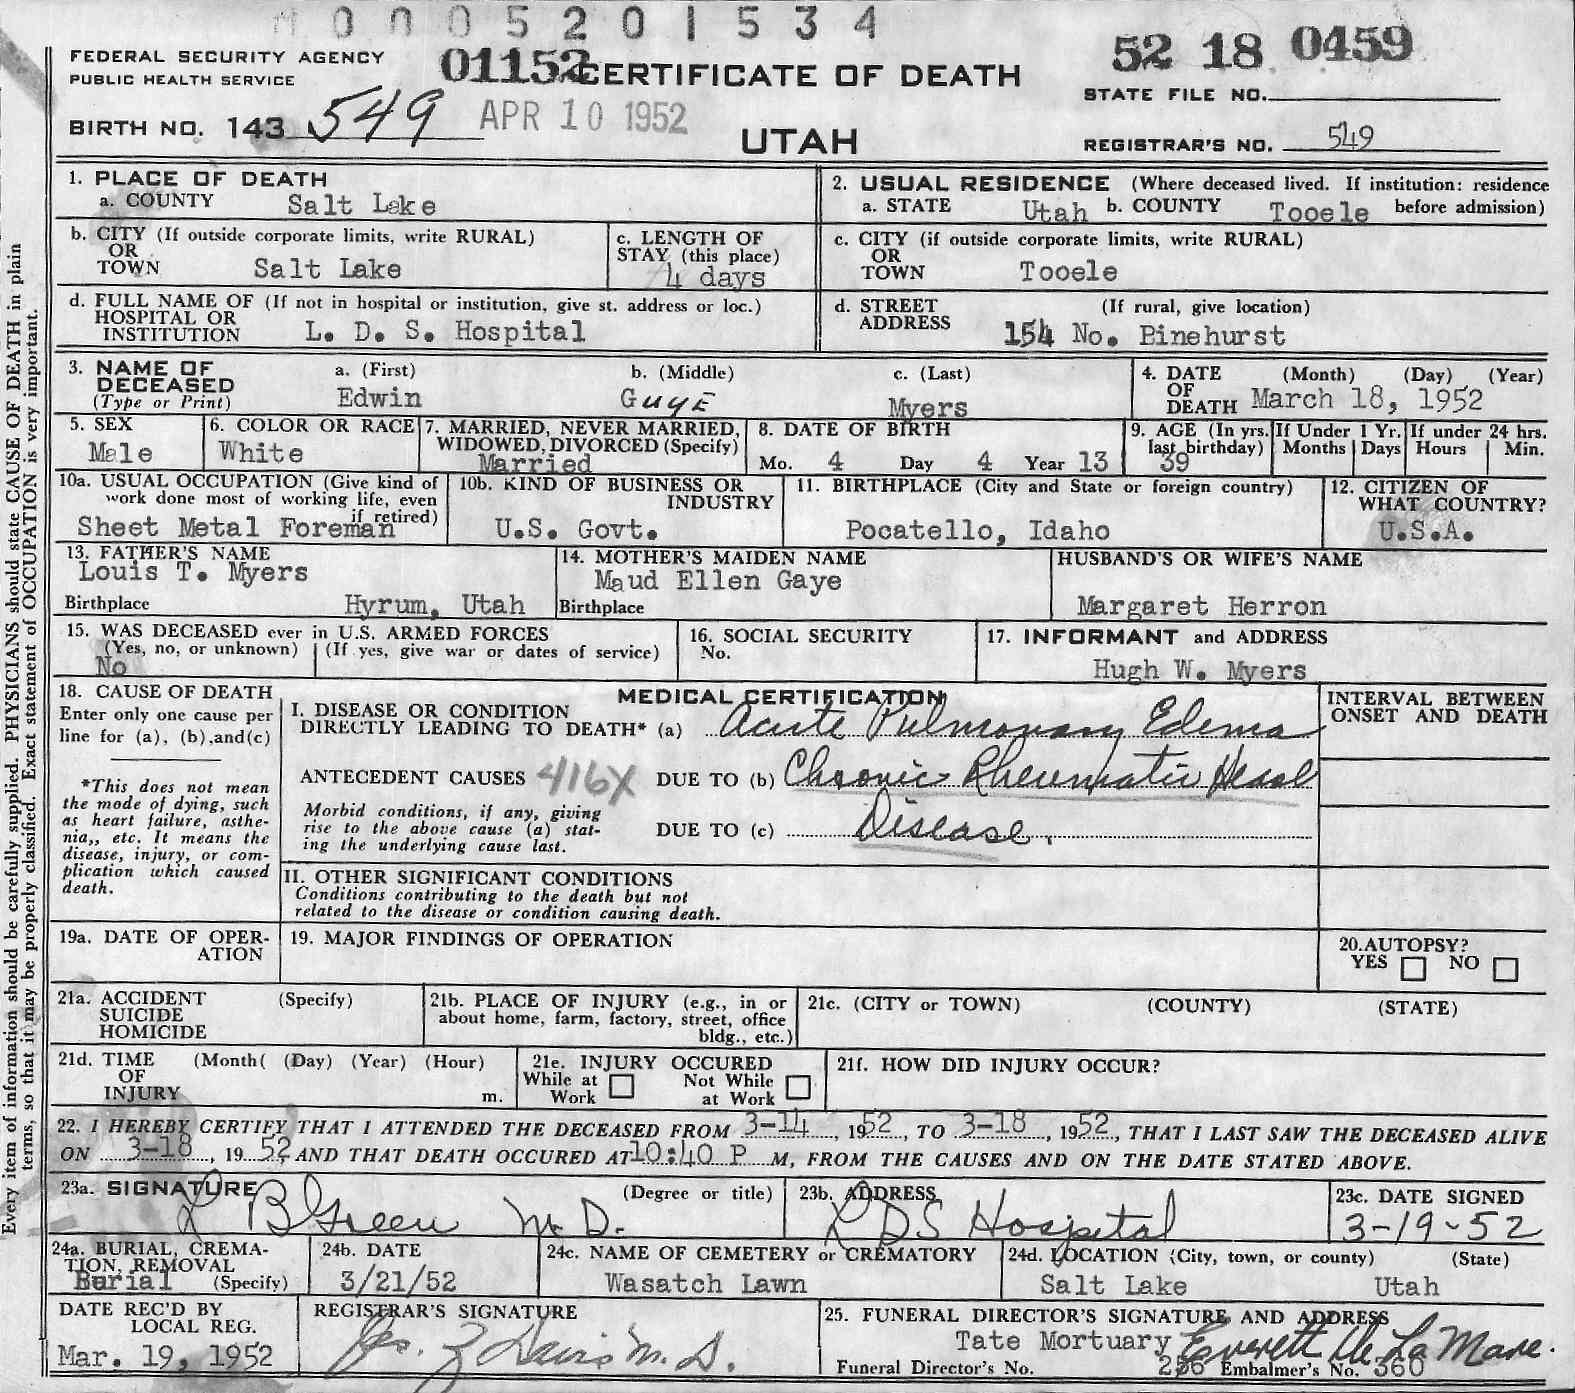 M 0 0 0 5 2 0 1 5 3 4
FEDERAL SECURITY AGENCY
PUBLIC HEALTH SERVICE
01152 CERTIFICATE OF DEATH
52 18 0459
STATE FILE NO.
BIRTH NO. 143 549
APR 10 1952
UTAH
REGISTRAR'S NO. 549
1. PLACE OF DEATH
a. COUNTY Salt Lake
2. USUAL RESIDENCE (Where deceased lived. If institution: residence
a. STATE Utah b. COUNTY Tooele before admission)
b. CITY (If outside corporate limits, write RURAL)
OR
TOWN Salt Lake
c. LENGTH OF
STAY (this place)
4 days
c. CITY (if outside corporate limits, write RURAL)
OR
TOWN Tooele
d. FULL NAME OF (If not in hospital or institution, give st. address or loc.)
HOSPITAL OR
INSTITUTION L. D. S. Hospital
d. STREET (If rural, give location)
ADDRESS
154 No. Pinehurst
3. NAME OF
DECEASED
(Type or Print)
a. (First) b. (Middle) c. (Last)
Edwin Guye Myers
4. DATE (Month) (Day) (Year)
OF
DEATH March 18, 1952
5. SEX
Male
6. COLOR OR RACE
White
7. MARRIED, NEVER MARRIED,
WIDOWED, DIVORCED (Specify)
Married
8. DATE OF BIRTH
Mo. 4 Day 4 Year 13
9. AGE (In yrs.
last birthday)
39
If Under 1 Yr.
Months Days
If under 24 hrs.
Hours Min.
10a. USUAL OCCUPATION (Give kind of
work done most of working life, even
if retired)
Sheet Metal Foreman
10b. KIND OF BUSINESS OR
INDUSTRY
U.S. Govt.
11. BIRTHPLACE (City and State or foreign country)
Pocatello, Idaho
12. CITIZEN OF
WHAT COUNTRY?
U.S.A.
13. FATHER'S NAME
Louis T. Myers
Birthplace Hyrum, Utah
14. MOTHER'S MAIDEN NAME
Maud Ellen Gaye
Birthplace
HUSBAND'S OR WIFE'S NAME
Margaret Herron
15. WAS DECEASED ever in U.S. ARMED FORCES
(Yes, no, or unknown) (If yes, give war or dates of service)
No
16. SOCIAL SECURITY
No.
17. INFORMANT and ADDRESS
Hugh W. Myers
18. CAUSE OF DEATH
Enter only one cause per
line for (a), (b), and (c)
*This does not mean
the mode of dying, such
as heart failure, asthe-
nia,, etc. It means the
disease, injury, or com-
plication which caused
death.
MEDICAL CERTIFICATION
INTERVAL BETWEEN
ONSET AND DEATH
I. DISEASE OR CONDITION
DIRECTLY LEADING TO DEATH* (a) Acute Pulmonary Edema
ANTECEDENT CAUSES 416X DUE TO (b) Chronic Rheumatic Heart
Morbid conditions, if any, giving
rise to the above cause (a) stat-
ing the underlying cause last.
DUE TO (c) Disease.
II. OTHER SIGNIFICANT CONDITIONS
Conditions contributing to the death but not
related to the disease or condition causing death.
19a. DATE OF OPER-
ATION
19. MAJOR FINDINGS OF OPERATION
20. AUTOPSY?
YES NO
21a. ACCIDENT (Specify)
SUICIDE
HOMICIDE
21b. PLACE OF INJURY (e.g., in or
about home, farm, factory, street, office
bldg., etc.)
21c. (CITY or TOWN) (COUNTY) (STATE)
21d. TIME (Month( (Day) (Year) (Hour)
OF
INJURY m.
21e. INJURY OCCURED
While at Work
Not While at Work
21f. HOW DID INJURY OCCUR?
22. I HEREBY CERTIFY THAT I ATTENDED THE DECEASED FROM 3-14, 1952, TO 3-18, 1952, THAT I LAST SAW THE DECEASED ALIVE
ON 3-18, 1952, AND THAT DEATH OCCURED AT 10:40 P M, FROM THE CAUSES AND ON THE DATE STATED ABOVE.
23a. SIGNATURE (Degree or title)
L B Green M.D.
23b. ADDRESS
LDS Hospital
23c. DATE SIGNED
3-19-52
24a. BURIAL, CREMA-
TION, REMOVAL
Burial (Specify)
24b. DATE
3/21/52
24c. NAME OF CEMETERY or CREMATORY
Wasatch Lawn
24d. LOCATION (City, town, or county) (State)
Salt Lake Utah
DATE REC'D BY
LOCAL REG.
Mar. 19, 1952
REGISTRAR'S SIGNATURE
Davis M.D.
25. FUNERAL DIRECTOR'S SIGNATURE AND ADDRESS
Tate Mortuary Everett De La Mare.
Funeral Director's No. 256 Embalmer's No. 360
Every item of information should be carefully supplied. PHYSICIANS should state CAUSE OF DEATH in plain
terms, so that it may be properly classified. Exact statement of OCCUPATION is very important.